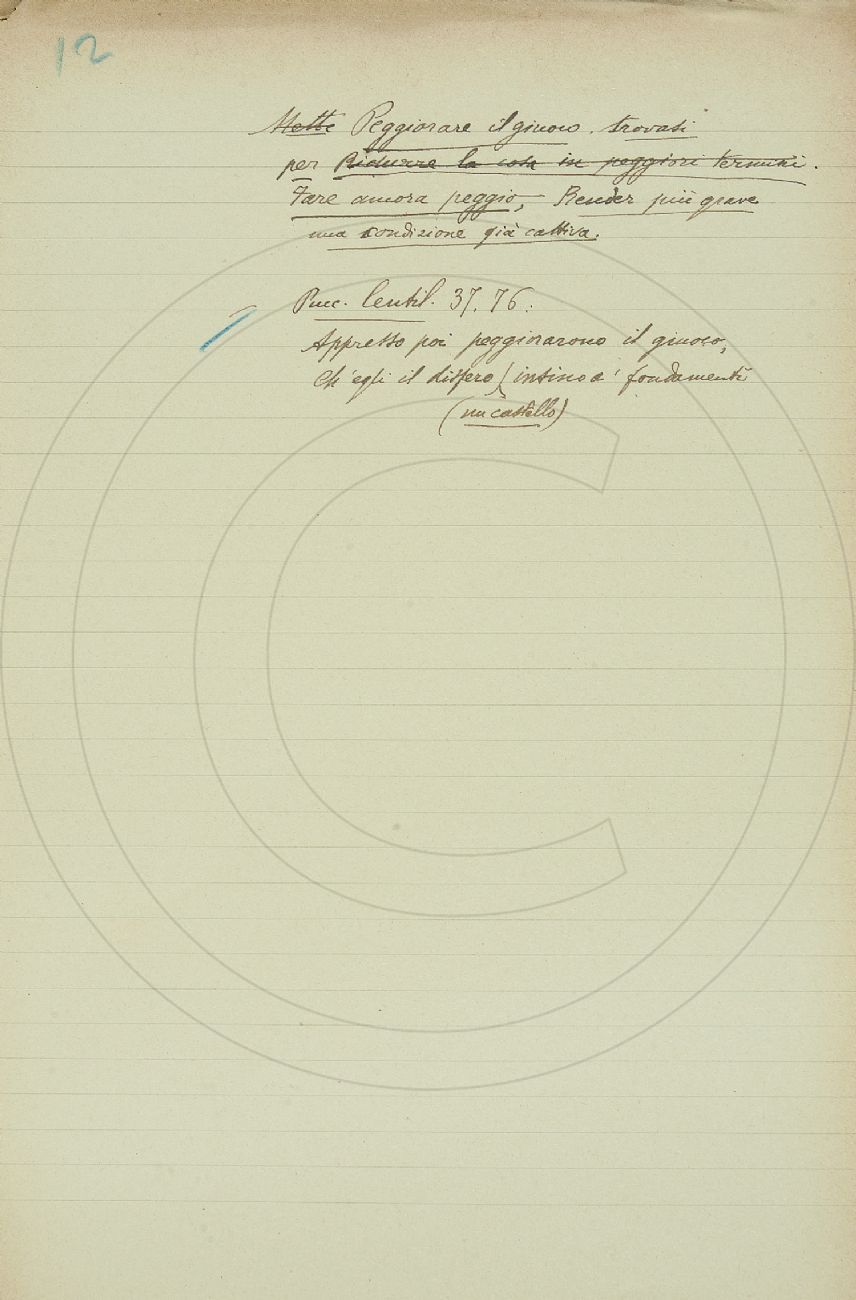 12
Mette Peggiorare il giuoco. trovasi
per Ridurre la cosa in peggiori termini.
Fare ancora peggio, Render più grave
una condizione già cattiva.
Pucc. Centil. 37. 76.
Appresso poi peggiorarono il giuoco,
Ch'egli il disfero insino a' fondamenti
(un castello)